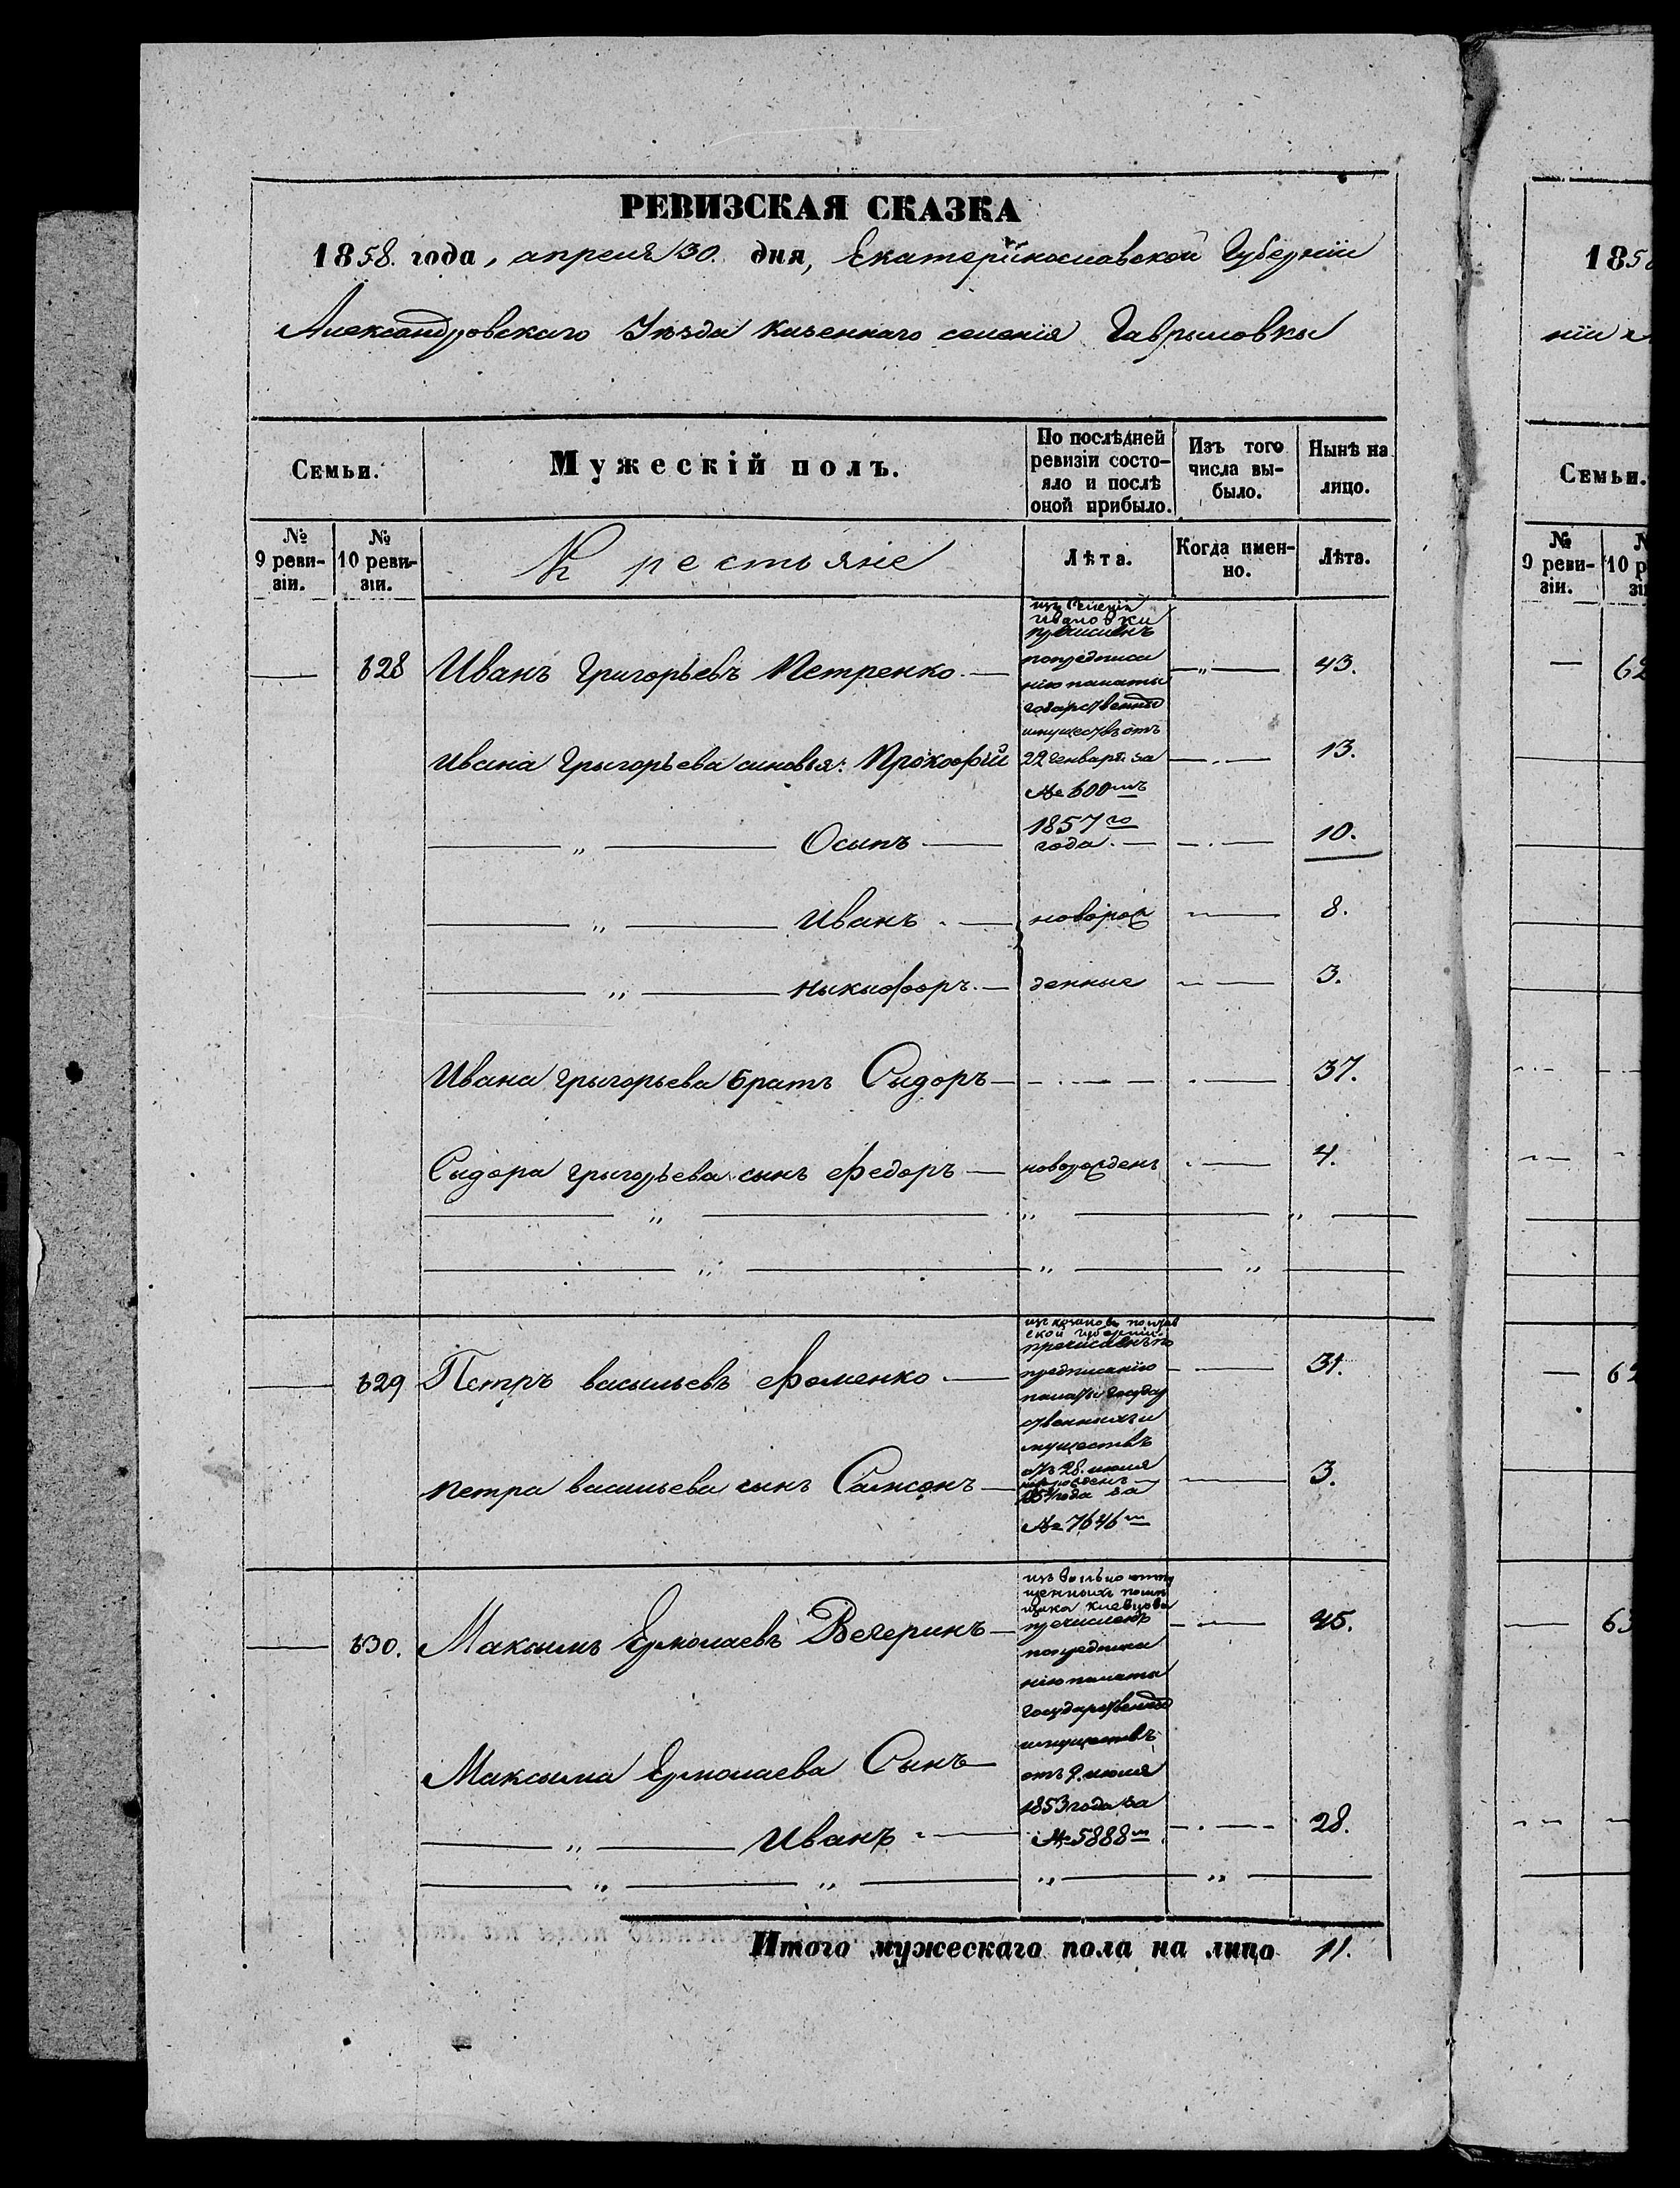 РЕВИЗСКАЯ СКАЗКА
1858. года, апреля 30. дня, Екатеринославской Губерніи
Александровскаго Уѣзда казеннаго селенія Гаврыловки
Семьи.
Мужескій полъ.
По послѣдней ревизіи состо-
яло и послѣ
оной прибыло.
Изъ того
числа вы-
было.
Нынѣ на
лицо.
№
9 реви-
зіи.
№
10 реви-
зіи.
Крестьяне
Лѣта.
Когда имен-
но.
Лѣта.
628 Иванъ Григорьевъ Петренко 43.
изъ селенія
Ивановки
причисленъ
попредписа
нію палаты
государственныхъ
имуществъ отъ
22 генваря за
№ 600мъ
1857го
года.
Ивана Грыгорьева сыновья: Прокофій 13.
Осыпъ 10.
Иванъ новорож 8.
Ныкыфоръ денные 3.
Ивана Грыгорьева братъ Сыдоръ 37.
Сыдора Грыгорьева сынъ Федоръ новорожденъ 4.
629 Петръ Васыльевъ Фоменко 31.
изъ козаковъ полтав
ской губерніи
причисленъ по
предписанію
палаты государ
ственныхъ и
муществъ
отъ 28. июля
года за
№ 7646м
Петра Васильева сынъ Самсонъ новорожденъ 3.
630. Максымъ Ермолаевъ Вечеринъ 45.
изъ вольно отпу
щенныхъ помѣ
щика
причисленъ
попредписа
нію палаты
государственныхъ
имуществъ
отъ 9. июля
1853 года за
№ 5888м
Максыма Ермолаева Сынъ
Иванъ 28.
Итого мужескаго пола на лицо 11.
185
ніи
Семьи.
№
9 реви-
зіи.
10 р
зі
62
62
63